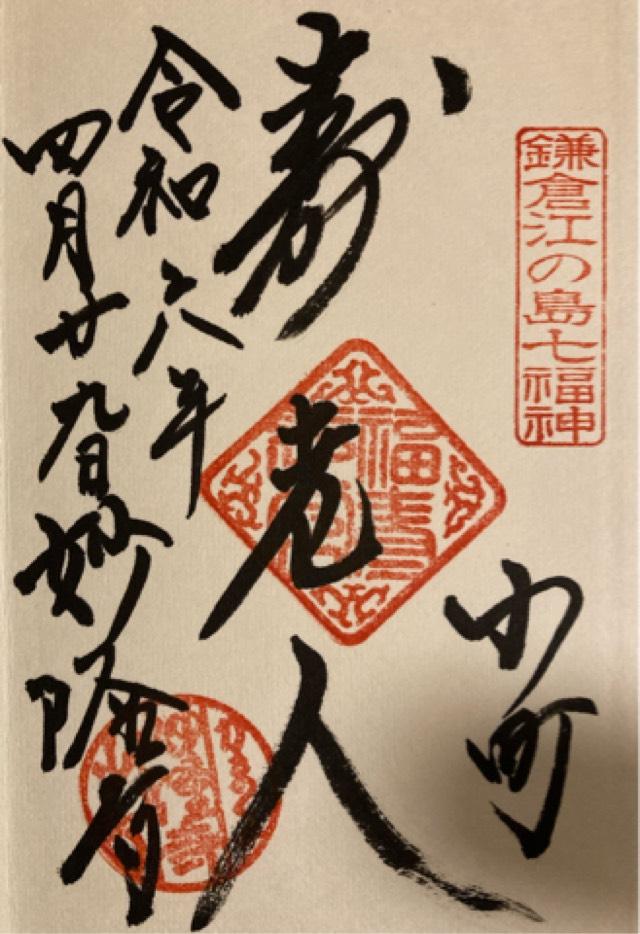 鎌倉江の島七福神
小町
寿老人
令和六年
四月廿九日妙隆寺